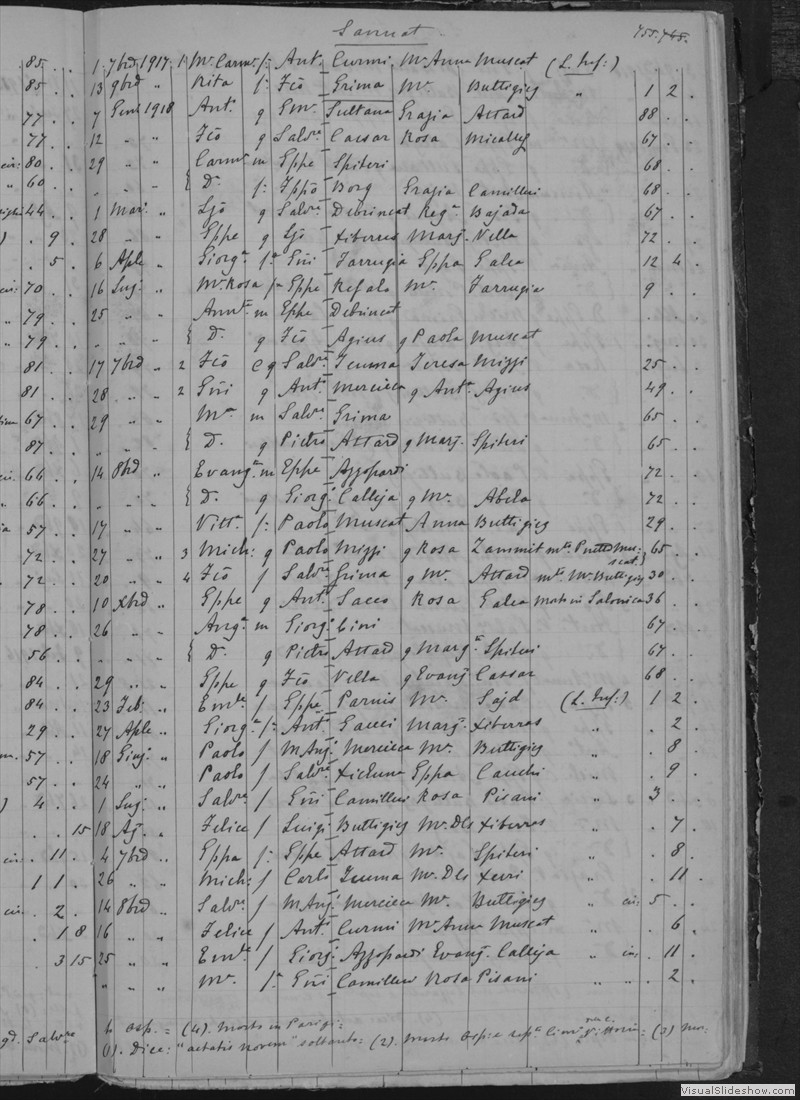 Sannat 755.745.
85 . . 1 7brd 1917 1 Mª Carmª f: Antº Curmi Mª Anna Muscat (L. Inf:)
85 . . 13 9brd " Rita f: Fcõ Grima Mª Buttigieg " 1 2 .
77 . . 7 Genº 1918 Antº g Emª Sultana Grazia Attard 88 . .
77 . . 12 " " Fcõ g Salvre Caesar Rosa Micallef 67 . .
80 . . 29 " " Carmª m Gppe Spiteri 68 . .
" 60 . . " " " { D. f: Gppõ Borg Grazia Camilleri 68 . .
44 . . 1 Mar: " g Salvre Debrincat Regª Bajada 67 . .
) . 9 . 28 " " Gppe g Xiberras Marj: Vella 72 . .
. 5 . 6 Aple " Giorgª fª Gñi Farrugia Gppa Galea 12 4 .
70 . . 16 Lug: " Mª Rosa fª Gppe Refalo Mª Farrugia 9 . .
" 79 . . 25 " " m Gppe Debrincat . . .
" 79 . . " " " { D. g Fcõ Agius g Paola Muscat . . .
81 . . 17 7brd " 2 Fcõ e g Salvre Teresa Mizzi 25 . .
81 . . 28 " " 2 Gñi g Antº Mercieca g Antª Agius 49 . .
67 . . 29 " " Mª m Salvre Grima 65 . .
87 . . " " " { D. g Pietro Attard g Marj: Spiteri 65 . .
66 . . 14 8brd " Evangª m Gppe Azzopardi 72 . .
" 66 . . " " " { D. g Giorg: Calleja g Mª Abela 72 . .
57 . . 17 " " Vittª f: Paolo Muscat Anna Buttigieg 29 . .
72 . . 27 " " 3 Mich: g Paolo Mizzi g Rosa Zammit 65 . .
72 . . 20 " " 4 Fcõ f Salvre Grima g Mª Attard mto Mª Buttigieg 30 . .
78 . . 10 Xbrd " Gppe g Antº Sacco Rosa Galea morto in Salonica 36 . .
78 . . 26 " " Angª m Giorg: Cini 67 . .
56 . . " " " { D. g Pietro Attard g Margª Spiteri 67 . .
84 . . 29 " " Gppe g Fcõ Vella g Evang: Cassar 68 . .
84 . . 23 Feb: " f Gppe Parnis Mª Sajd (L. Inf:) 1 2 .
29 . . 27 Aple " Giorgª f: Antº Gauci Marj: Xiberras " . 2 .
57 . . 18 Giug: " Paolo f M Ang: Mercieca Mª Buttigieg " . 8 .
57 . . 24 " " Paolo f Salvre Xicluna Gppa Cauchi " . 9 .
) 4 . . 1 Lug: " Salvre f Gñi Camilleri Rosa Pisani " 3 . .
. . 15 18 Ag: " Felice f Luigi Buttigieg Mª Dls Xiberras " . 7 .
. 11 . 4 7brd " Gppa f: Gppe Attard Mª Spiteri " . 8 .
1 1 . 26 " " Mich: f Carlo Mª Dls Xerri " . 11 .
. 2 . 14 8brd " Salvre f M Ang: Mercieca Mª Buttigieg " cir: 5 . .
. 1 8 16 " " Felice f Antº Curmi Mª Anna Muscat " . 6 .
. 3 15 25 " " f Giorg: Azzopardi Evang: Calleja " cir: 11 .
" " " Mª fª Gñi Camilleri Rosa Pisani " " . 2 .
Salvre
6 osp. = (4). Morto in Parigi:
(1). Dice: "aetatis novem" soltanto: (2). Morto
VisualSlideshow.com